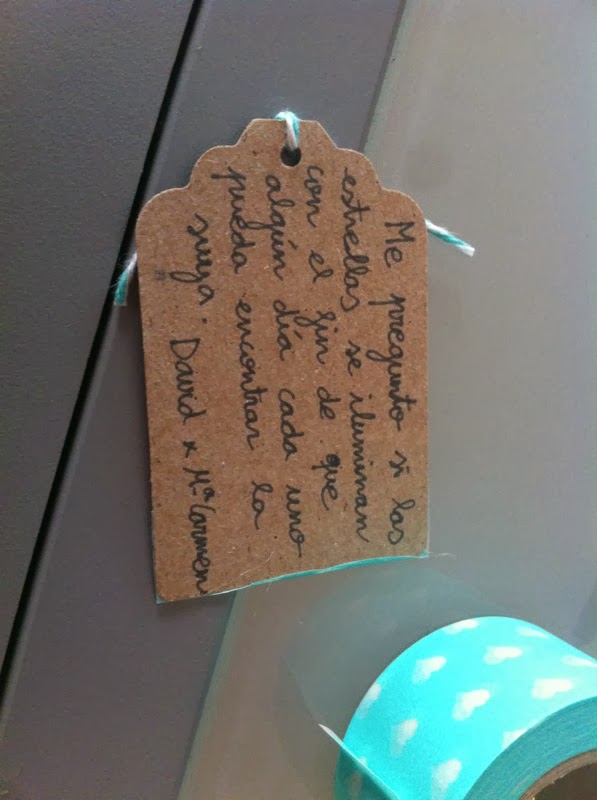 Me pregunto si las
estrellas se iluminan
con el fin de que
algún día cada uno
pueda encontrar la
suya. David x Mª Carmen